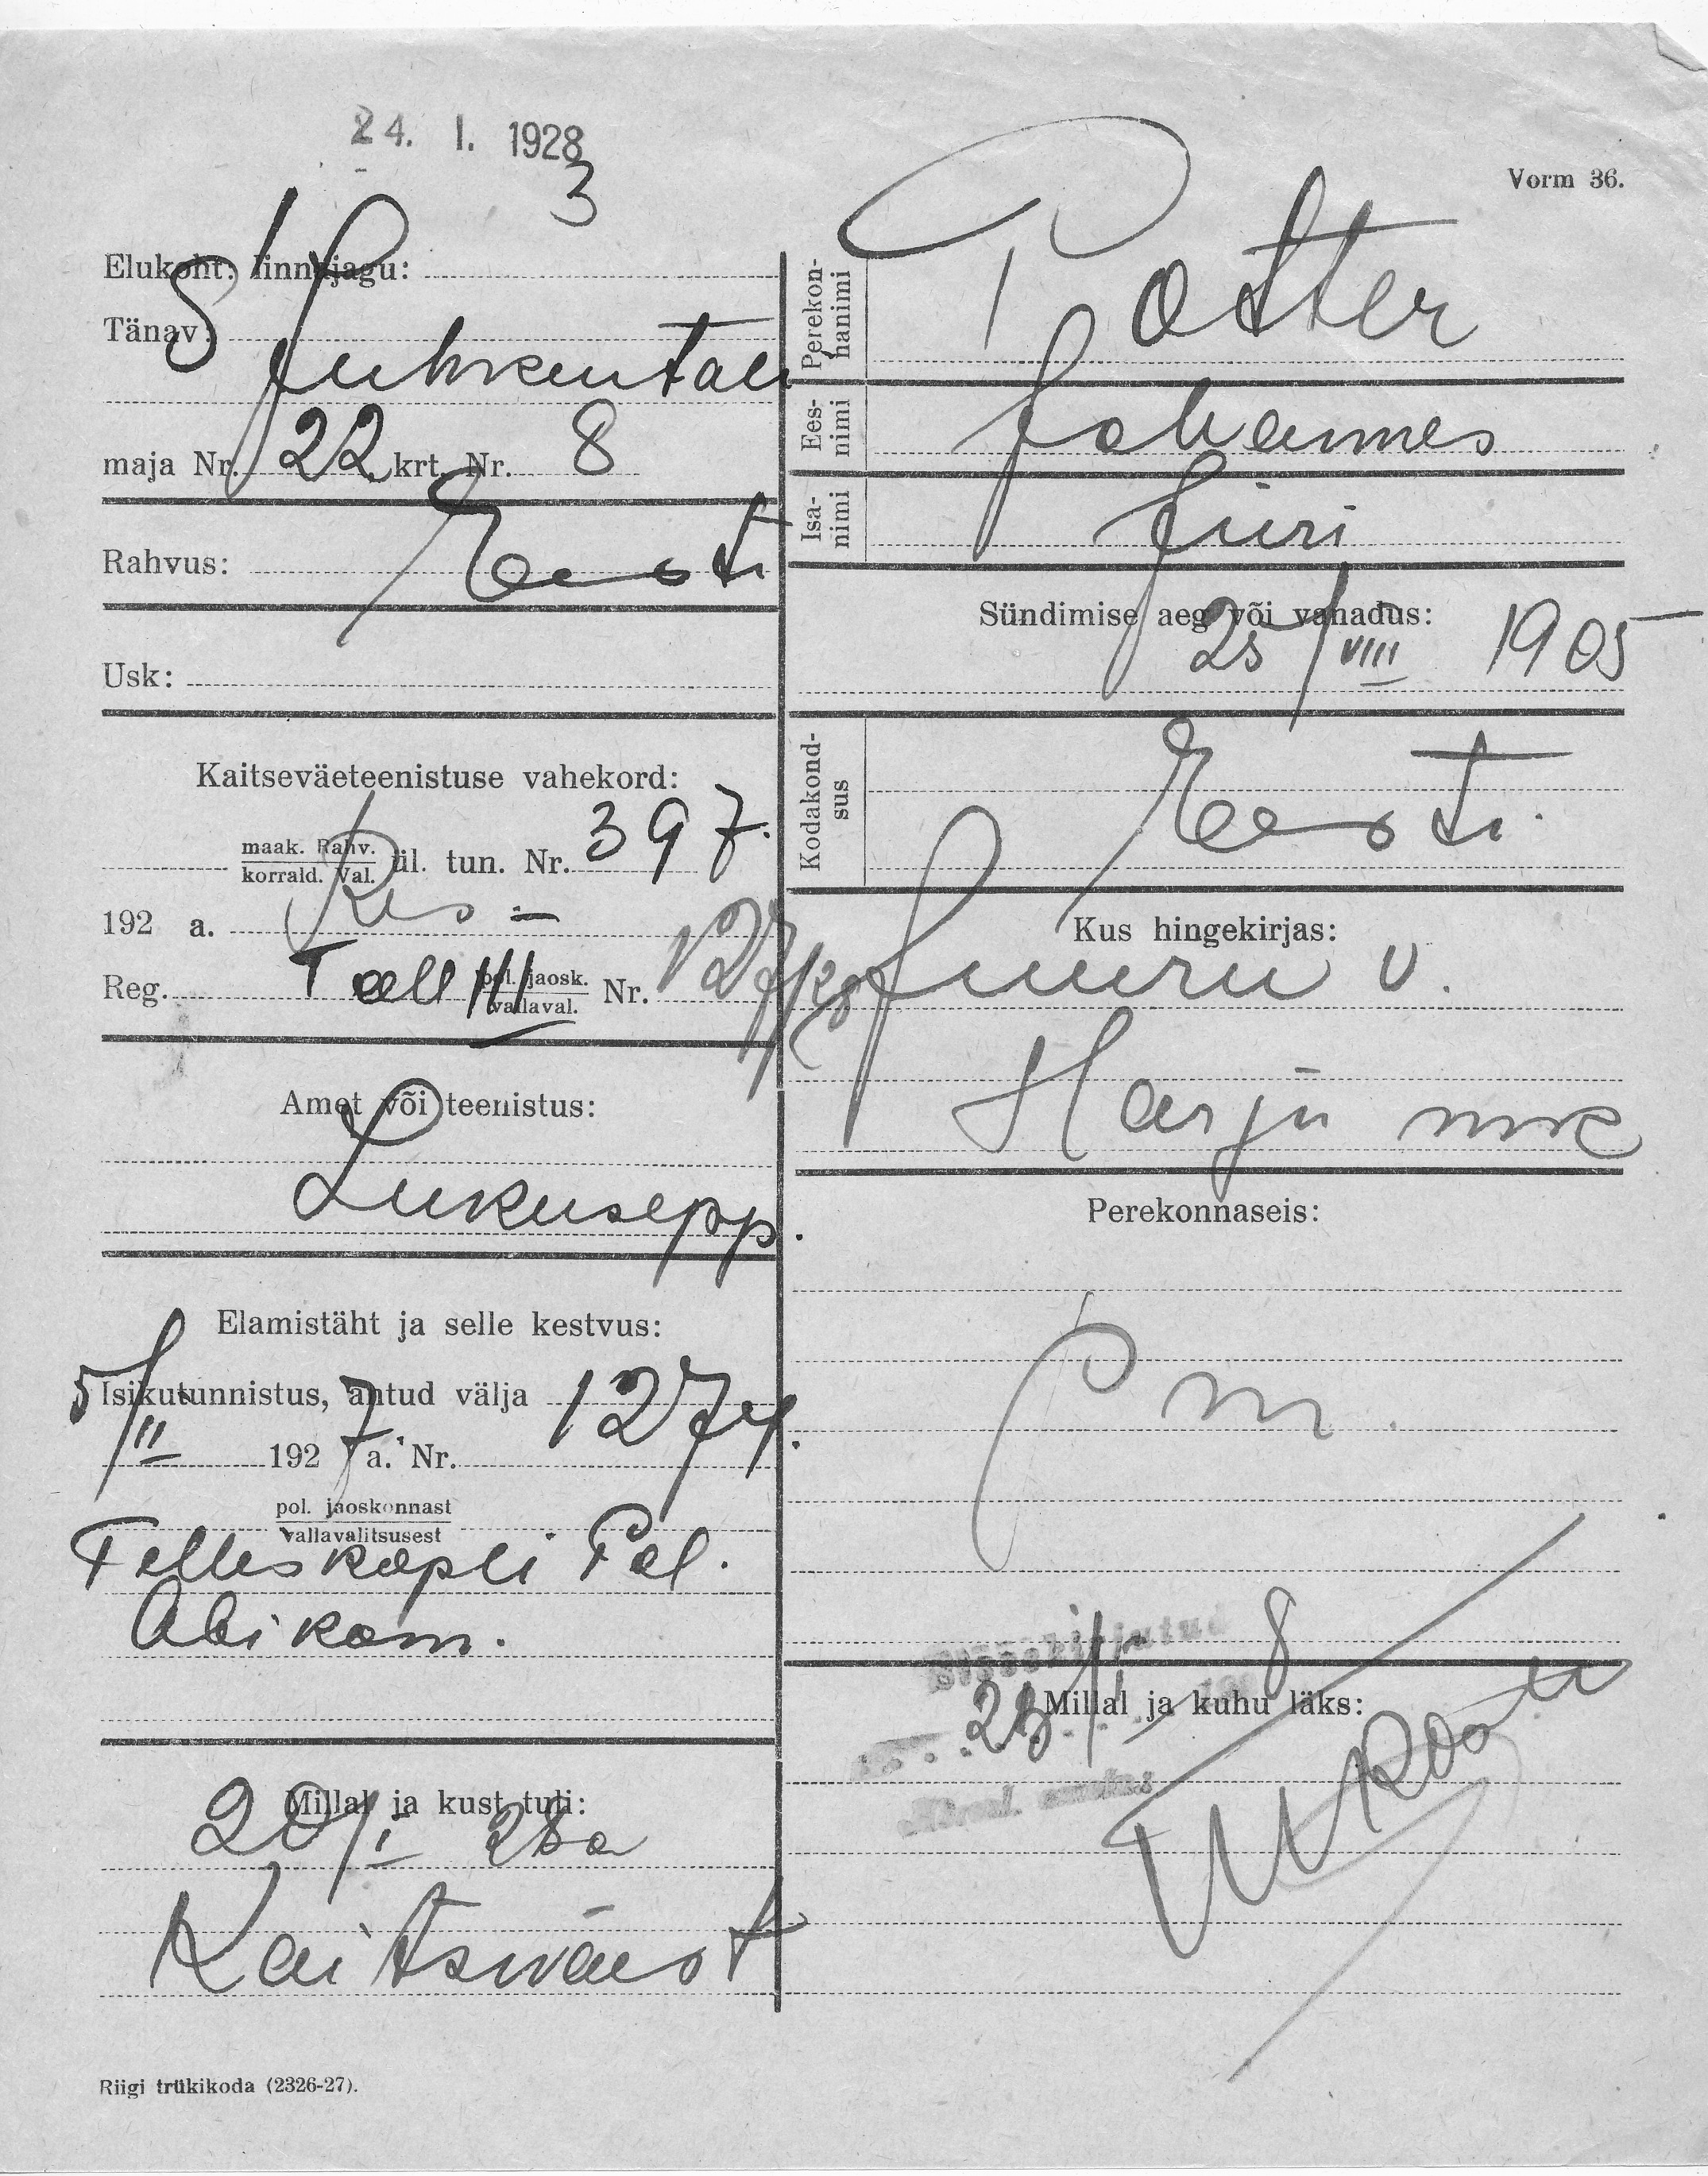 24. I. 1928
3
Vorm 36.
Elukoht: linnajagu:
Tänav: S. Juhkentali
maja Nr. 22 krt. Nr. 8
Rahvus: Eesti
Usk:
Kaitseväeteenistuse vahekord:
maak. Rahv. korrald. Val. ül. tun. Nr. 397.
192 a. Res -
Reg. Tall III pol. jaosk. vallaval. Nr. 127/28
Amet või teenistus:
Lukusepp.
Elamistäht ja selle kestvus:
Isikutunnistus, antud välja
5/II 1927 a. Nr. 1274.
pol. jaoskonnast
vallavalitsusest
Telleskopli Pol.
Abikom.
Millal ja kust tuli:
20/I 28 a
Kaitsväest
Riigi trükikoda (2326-27).
Perekonnanimi
Potter
Eesnimi
Johannes
Isanimi
Jüri
Sündimise aeg või vanadus:
25/VIII 1905
Kodakondsus
Eesti.
Kus hingekirjas:
Juuru v.
Harju mk
Perekonnaseis:
m.
Millal ja kuhu läks: